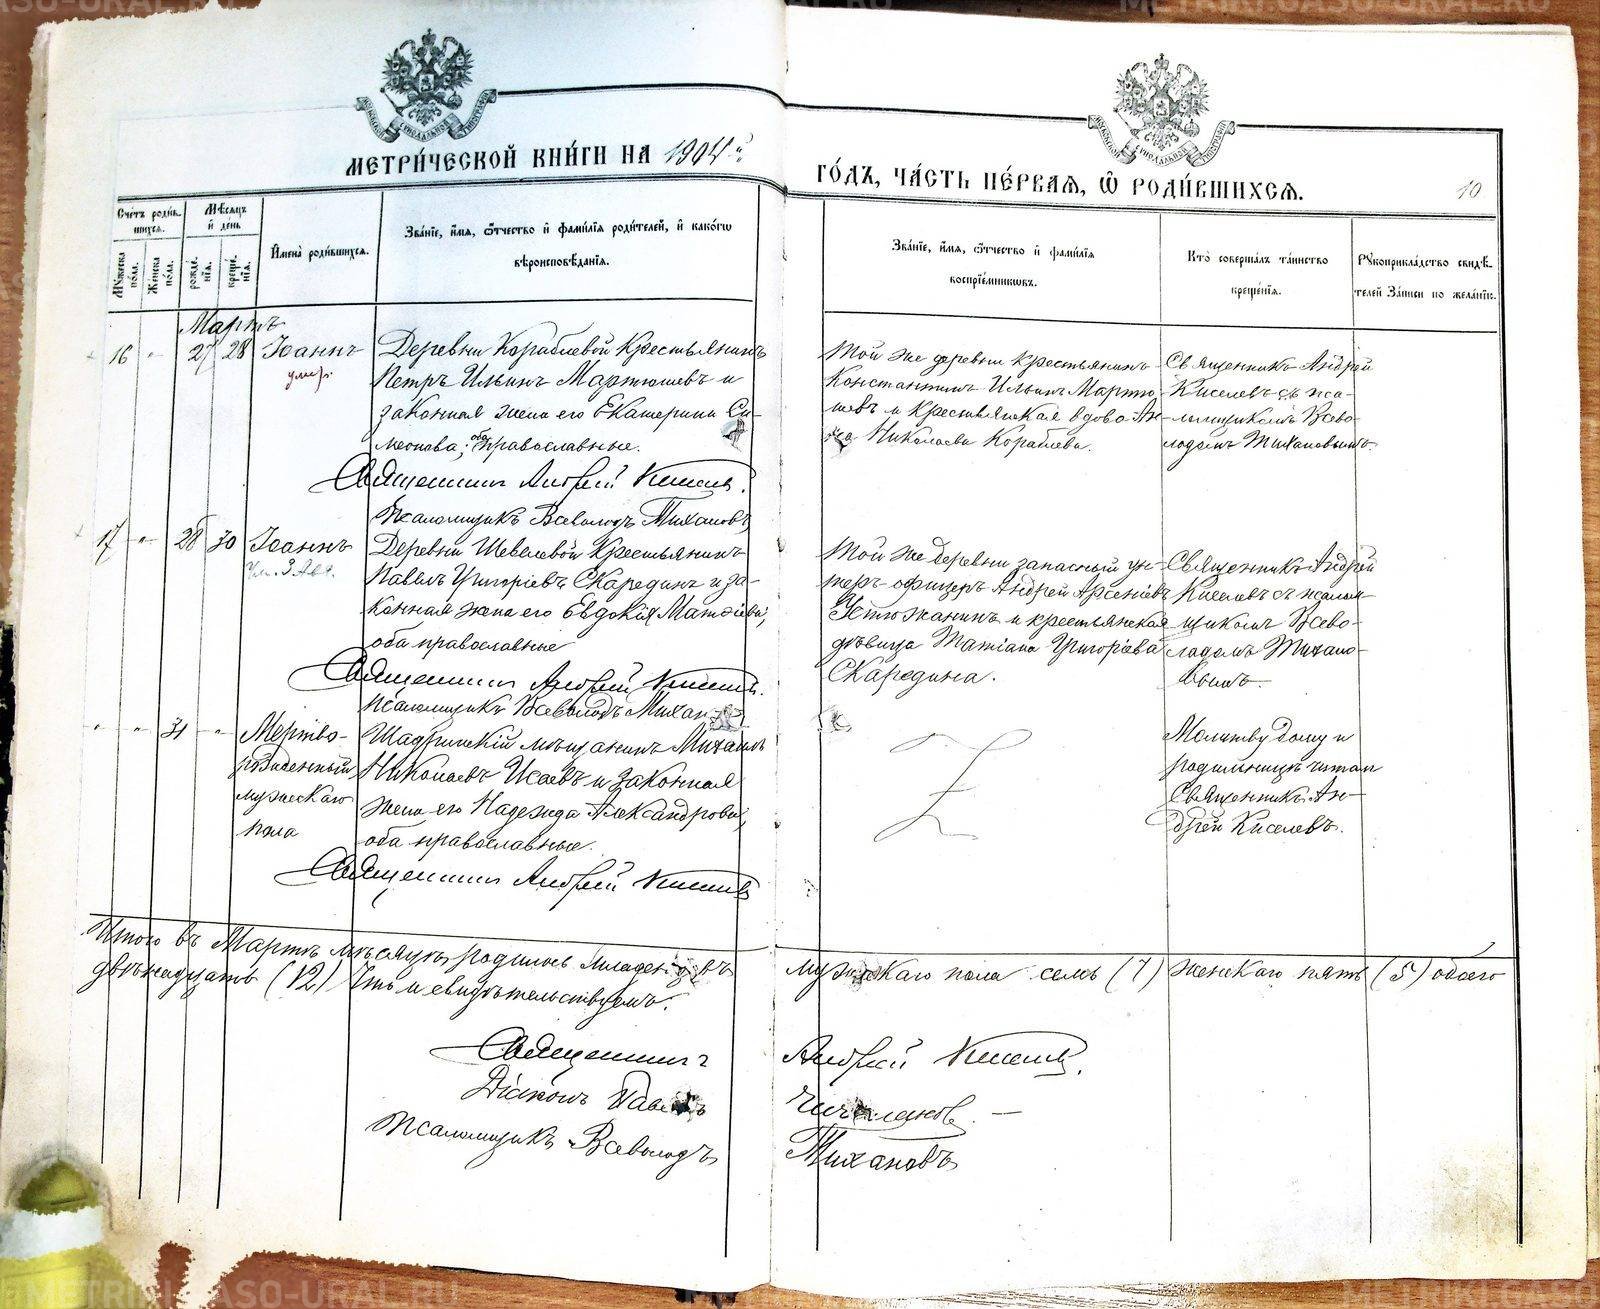 METRIKI.GASO-URAL.RU
МЕТРИ́ЧЕСКОЙ КНИ́ГИ НА 1904й
ГО́ДЪ, ЧА́СТЬ ПЕ́РВАЯ, Ѡ РОДИ́ВШИХСЯ.
10
Сче́тъ роди́в-
шихся.
Му́жеска по́ла.
Же́нска по́ла.
Мѣ́сяцъ
и де́нь
рожде́-
нія.
креще́-
нія.
Имена̀ роди́вшихся.
Зва́ніе, и́мя, ѻ́тчество и фами́лія роди́телей, и како́гѡ
вѣроисповѣ́данія.
Зва́ніе, и́мя, ѻ́тчество и фами́лія
воспріе́мникѡвъ.
Кто̀ соверша́лъ та́инство
креще́нія.
Рукоприкла́дство свидѣ́-
телей за́писи по жела́нію.
Мартъ
16 " 27 28 Іоаннъ
умер.
Деревни Кораблевой крестьянинъ
Петръ Ильинъ Мартюшевъ и
законная жена его Екатерина Си-
меонова, оба православные.
Священникъ Андрей Киселевъ.
Псаломщикъ Всеволодъ Тихановъ
Той же деревни крестьянинъ
Константинъ Ильинъ Мартю-
шевъ и крестьянская вдова Ан-
на Николаева Кораблева.
Священникъ Андрей
Киселевъ съ пса-
ломщикомъ Всево-
лодомъ Тихановымъ.
17 " 28 30 Іоаннъ
Ум. 3 Авг.
Деревни Шевелевой крестьянинъ
Павелъ Григоріевъ Скарединъ и за-
конная жена его Евдокія Матѳіева,
оба православные
Священникъ Андрей Киселевъ.
Псаломщикъ Всеволодъ Тихановъ
Той же деревни запасный ун-
теръ-офицеръ Андрей Арсеніевъ
Устюжанинъ и крестьянская
дѣвица Татіана Григоріева
Скаредина.
Священникъ Андрей
Киселевъ съ псалом-
щикомъ Всево-
лодомъ Тихано-
вымъ.
" " 31 " Мертво-
рожденный
мужескаго
пола
Шадринскій мѣщанинъ Михаилъ
Николаевъ Исаевъ и законная
жена его Надежда Александрова,
оба православные.
Священникъ Андрей Киселевъ
Молитву дому и
родильницѣ читал
Священникъ Ан-
дрей Киселевъ.
Итого въ Мартѣ мѣсяцѣ родилось младенцевъ мужескаго пола семь (7) женскаго пять (5) обоего
двѣнадцать (12) Что и свидѣтельствуемъ:
Священникъ Андрей Киселевъ.
Діаконъ Павелъ
Псаломщикъ Всеволодъ Тихановъ
METRIKI.GASO-URAL.RU